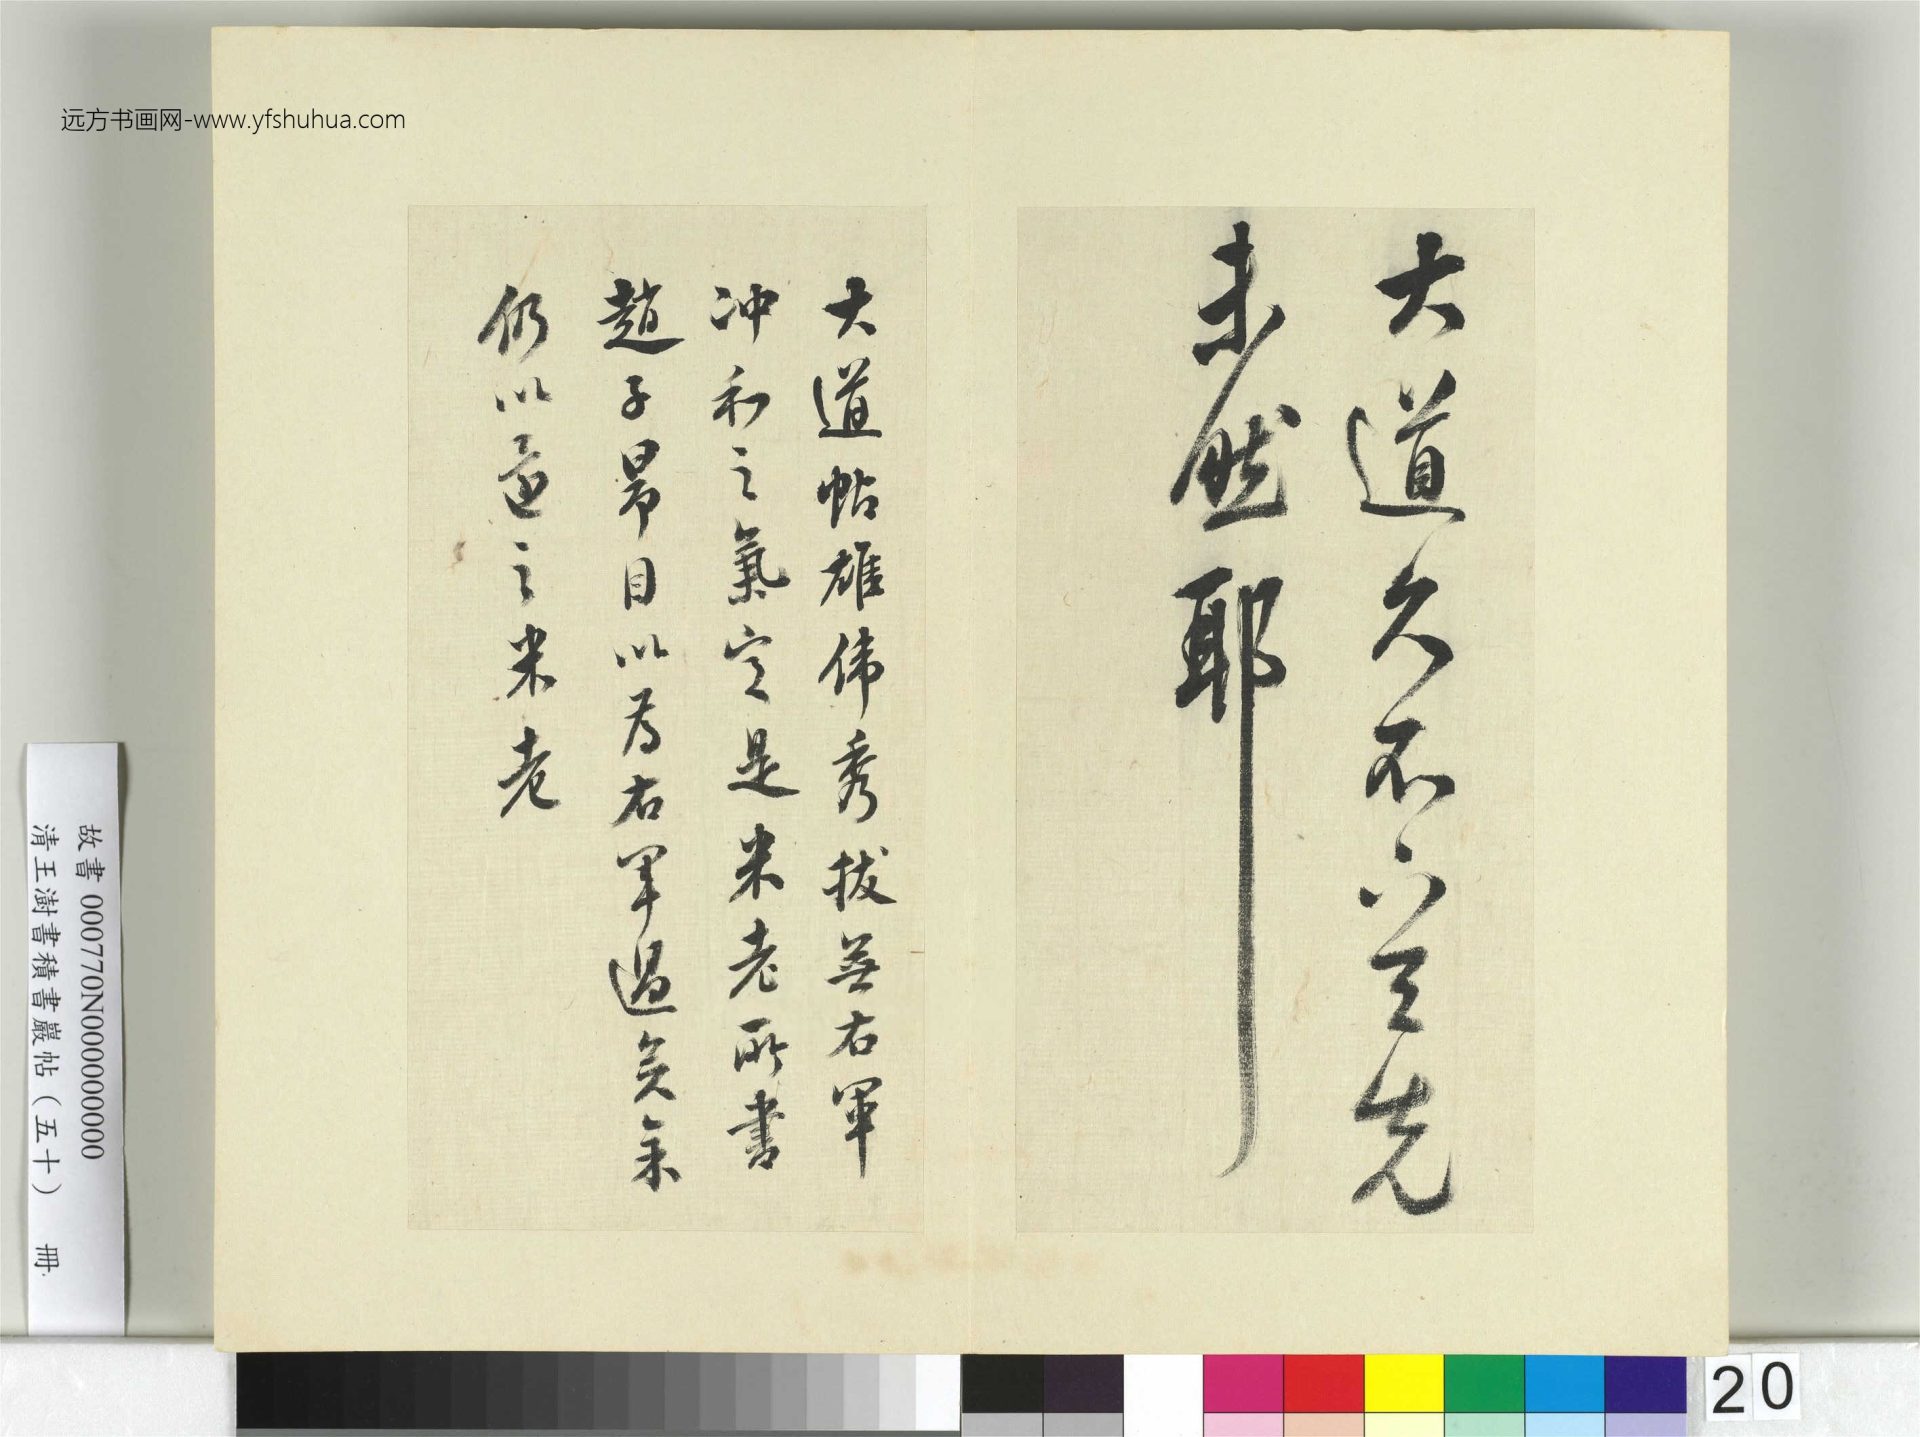 远方书画网-www.yfshuhua.com
大道久不下与先
未然耶
大道帖雄偉秀拔無右軍
冲和之氣定是米老所書
趙子昂目以為右軍過矣余
仍以還之米老
故書 000770N000000000
清王澍書積書巖帖(五十) 冊
20